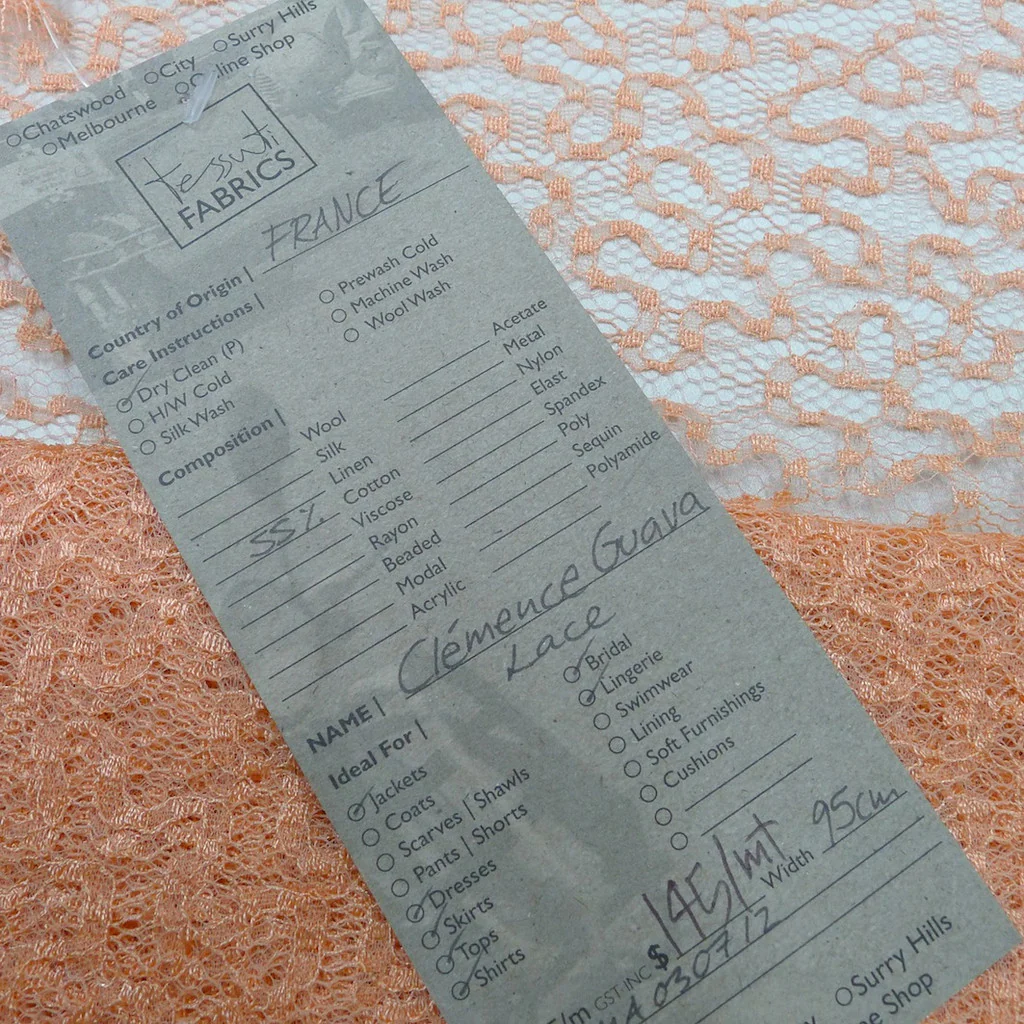 Surry Hills
City
Online Shop
Chatswood
Melbourne
tessuti
FABRICS
Country of Origin | FRANCE
Care Instructions |
Dry Clean (P)
H/W Cold
Silk Wash
Prewash Cold
Machine Wash
Wool Wash
Composition |
Wool
Silk
Linen
55% Cotton
Viscose
Rayon
Beaded
Modal
Acrylic
Acetate
Metal
Nylon
Elast
Spandex
Poly
Sequin
Polyamide
NAME | Clémence Guava
Lace
Ideal For |
Jackets
Coats
Scarves | Shawls
Pants | Shorts
Dresses
Skirts
Tops
Shirts
Bridal
Lingerie
Swimwear
Lining
Soft Furnishings
Cushions
$145/mt Width 95cm
GST-INC
A030712
Surry Hills
Shop